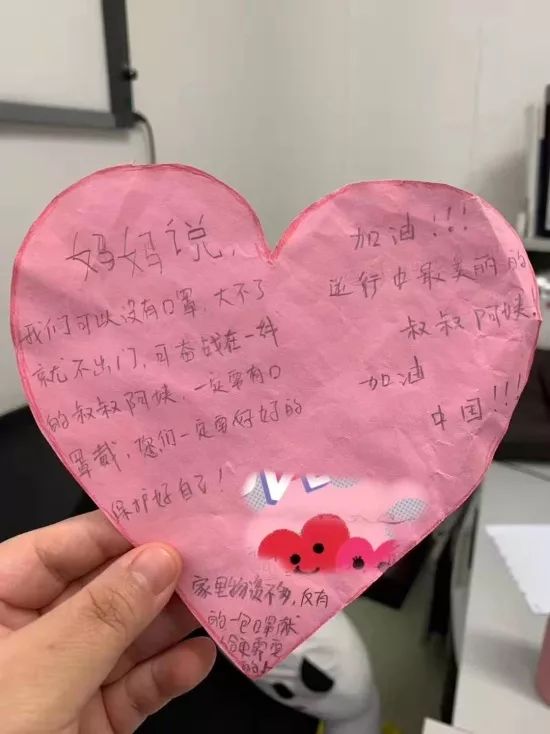 妈妈说,
我们可以没有口罩,大不了
就不出门,可奋战在一线
的叔叔阿姨,一定要有口
罩戴,您们一定要好好的
保护好自己!
加油!!!
逆行中最美丽的
叔叔阿姨
加油
中国!!!
家里物资不多,仅有
的一包口罩献
给更需要
的人